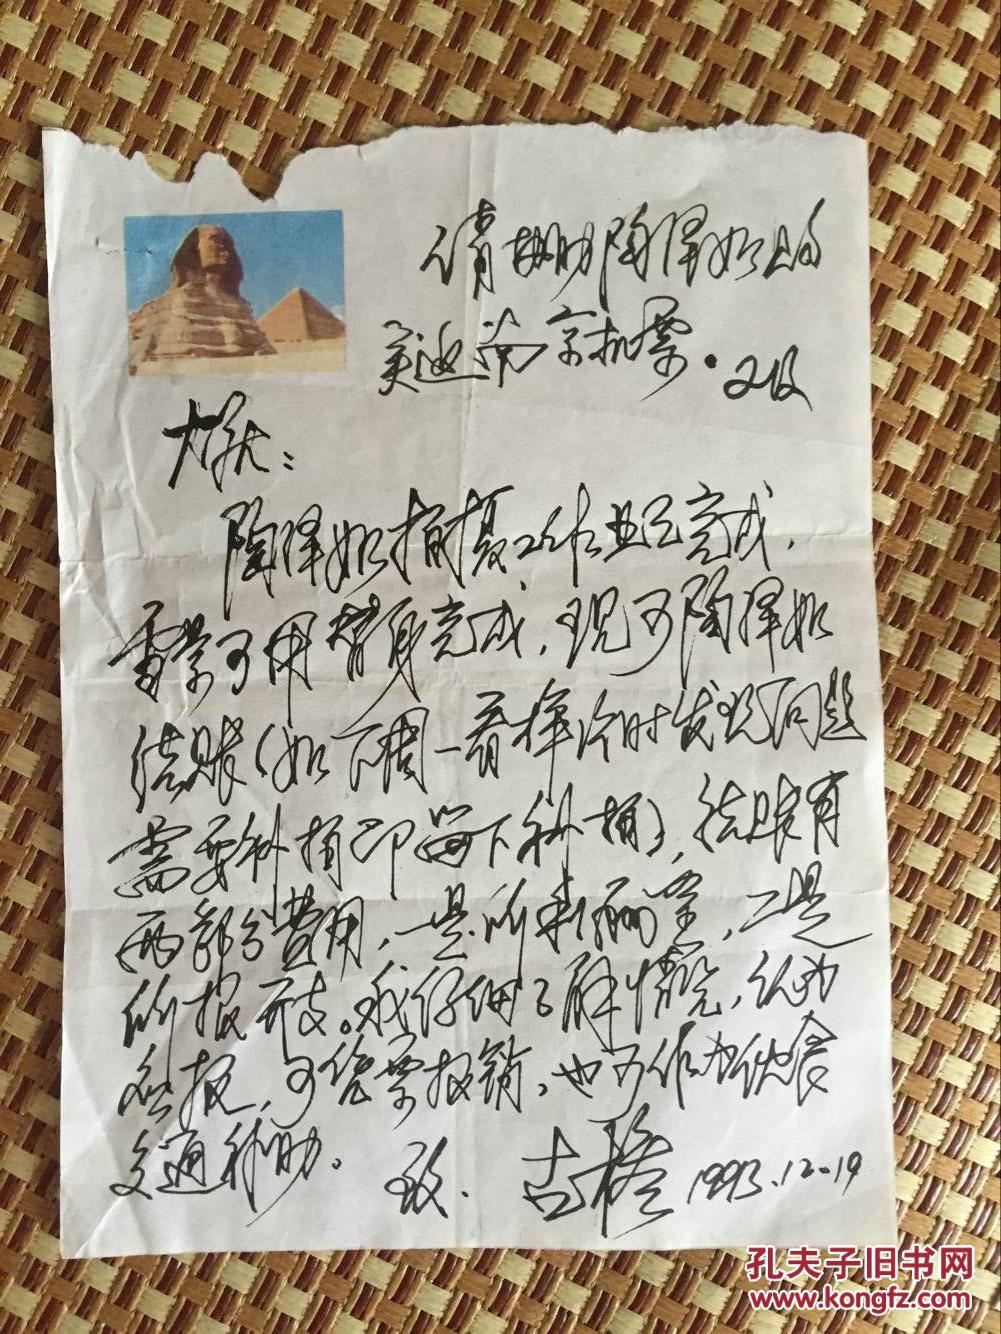 请协助陶泽如的
美迪南京机票。
陶泽如拍摄工作业已完成，
雪景可用替身完成，现可陶泽如
结账（如下周一看样片时发现问题
需要补拍即留下补拍），结账有
两部分费用，一是所剩酬金，二是
所报开支。我仔细了解情况，认为
应报，可凭票报销，也可作为伙食
交通补助。
致
古榕 1993.12.19
孔夫子旧书网
www.kongfz.com